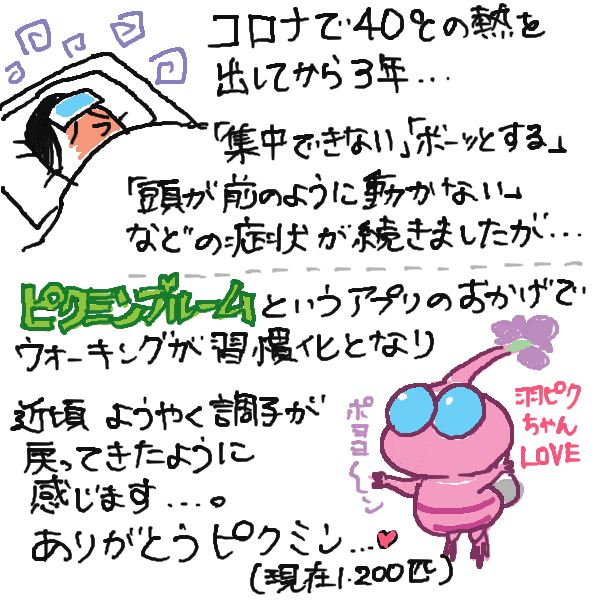 コロナで40℃の熱を
出してから3年...
「集中できない」「ボーッとする」
「頭が前のように動かない」
などの症状が続きましたが...
ピクミンブルームというアプリのおかげで
ウォーキングが習慣化となり
近頃ようやく調子が
戻ってきたように
感じます...。
ありがとうピクミン...
(現在1.200匹)
ポヨヨ〜ン
羽ピク
ちゃん
LOVE